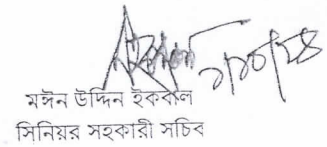 মঈন উদ্দিন ইকবাল
সিনিয়র সহকারী সচিব